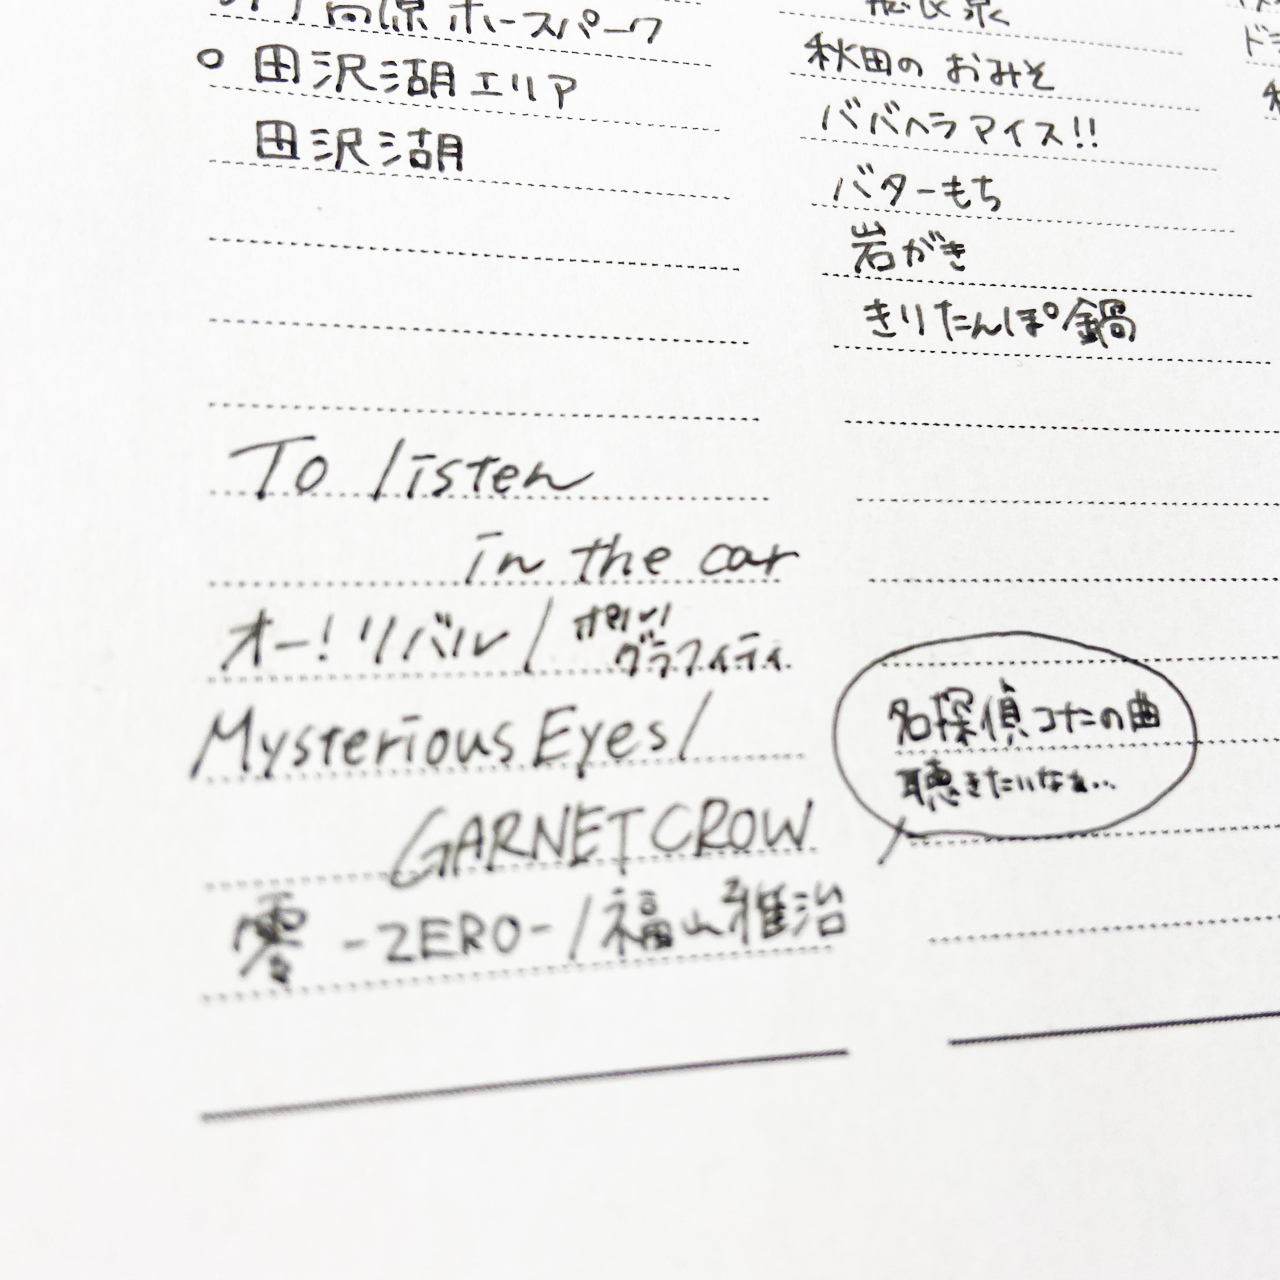 高原ホースパーク
○ 田沢湖エリア
田沢湖
To listen
in the car
オー!リバル/ポルノ
グラフィティ
Mysterious Eyes/
GARNET CROW
零 -ZERO-/福山雅治
秋田の おみそ
ババヘラアイス!!
バターもち
岩がき
きりたんぽ鍋
名探偵コナンの曲
聴きたいなぁ..